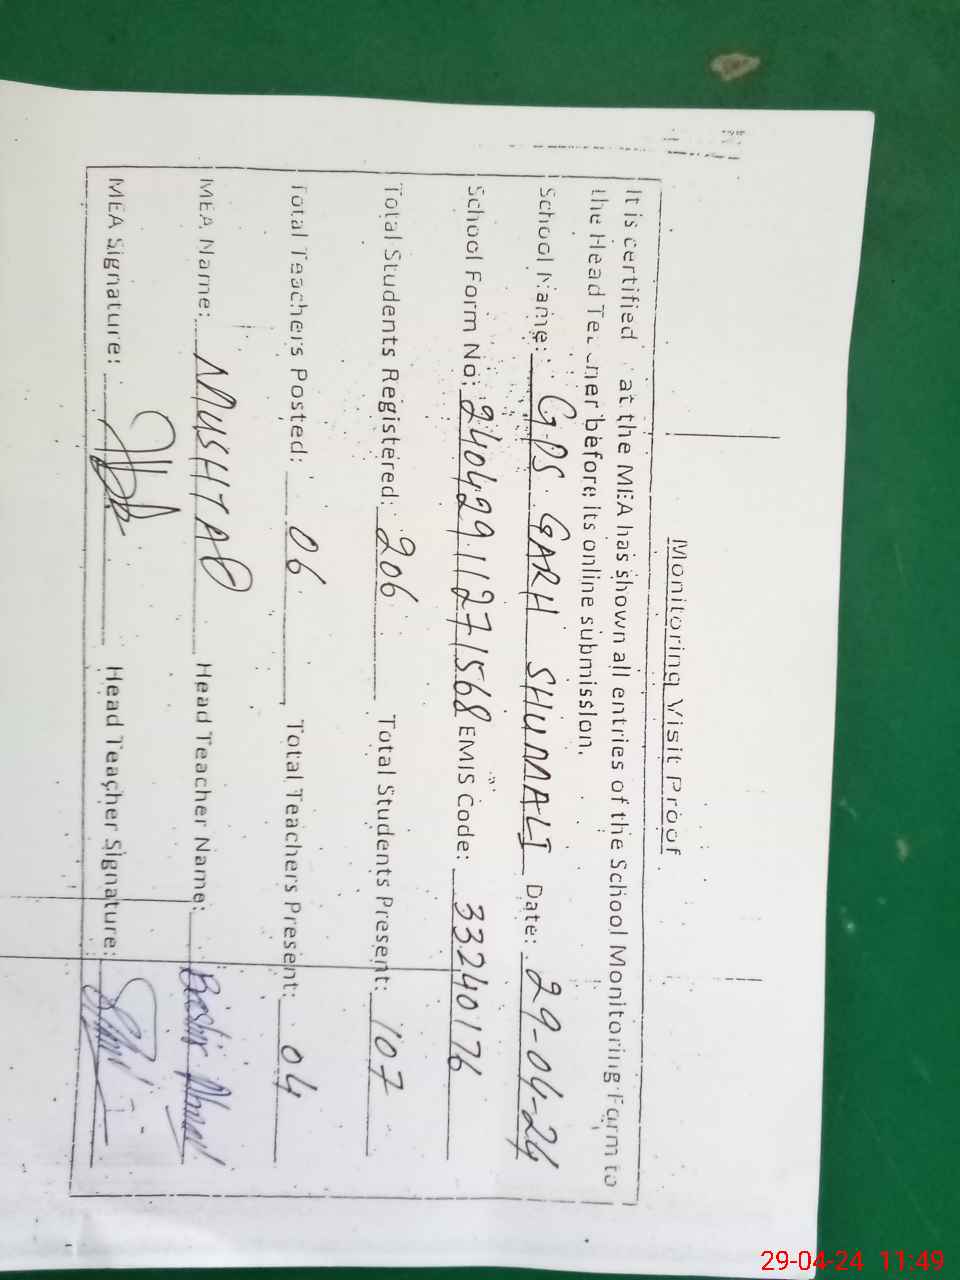 Monitoring Visit Proof
It is certified at the MEA has shown all entries of the School Monitoring Farm to
the Head Teacher before its online submission.
School Name: GPS GARH SHUMALI Date: 29-04-24
School Form No: 24042911271568 EMIS Code: 33240176
Total Students Registered: 206 Total Students Present: 107
Total Teachers Posted: 06 Total Teachers Present: 04
MEA Name: MUSHTAQ Head Teacher Name: Bashir Ahmad
MEA Signature: Head Teacher Signature:
29-04-24 11:49